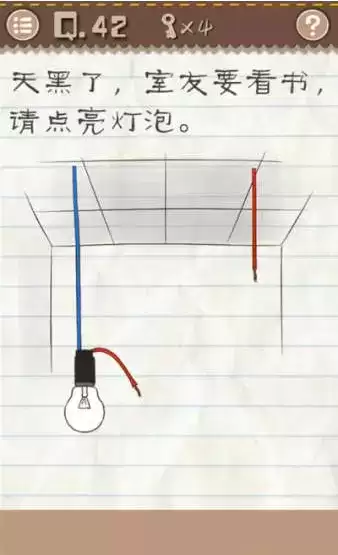 Q.42 ×4 ?
天黑了，室友要看书，
请点亮灯泡。